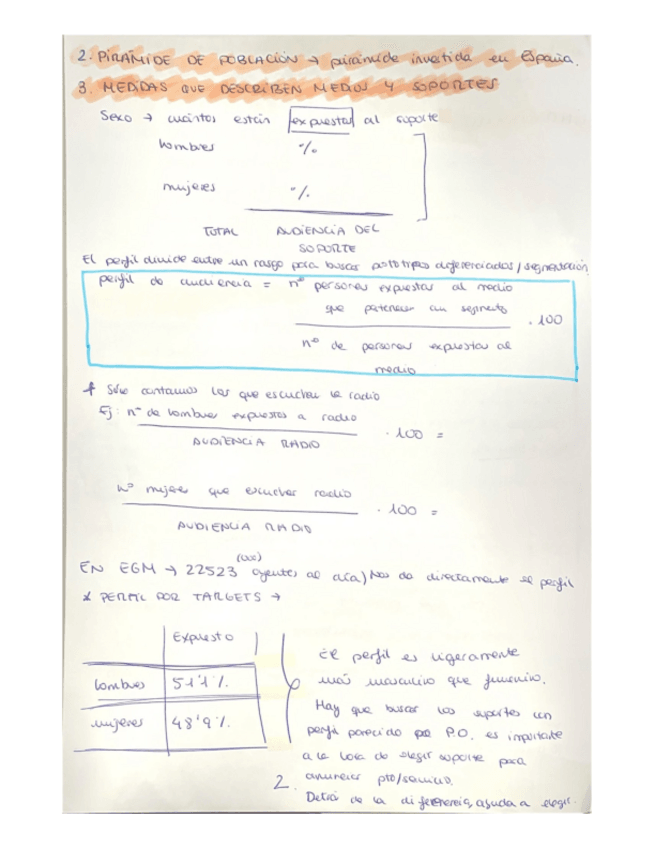 2. PIRÁMIDE DE POBLACIÓN → pirámide invertida en España.
3. MEDIDAS QUE DESCRIBEN MEDIOS Y SOPORTES
Sexo → cuántos están expuestos al soporte
hombres %
mujeres %
TOTAL AUDIENCIA DEL
SOPORTE
El perfil divide entre un rasgo para buscar prototipos diferenciados/segmentación
perfil de audiencia = nº personas expuestas al medio
que pertenecen a un segmento
. 100
nº de personas expuestas al
medio
* Sólo contamos los que escuchan la radio
Ej: nº de hombres expuestos a radio
AUDIENCIA RADIO
. 100 =
nº mujeres que escuchan radio
AUDIENCIA RADIO
. 100 =
(000)
EN EGM → 22523 oyentes al día) Nos da directamente el perfil
* PERFIL POR TARGETS →
Expuesto
hombres 51'1%
mujeres 48'9%
El perfil es ligeramente
más masculino que femenino.
Hay que buscar los soportes con
perfil parecido por P.O. es importante
a la hora de elegir soporte para
anunciar pto/servicio.
2.
Detrás de la diferencia, ayuda a elegir.